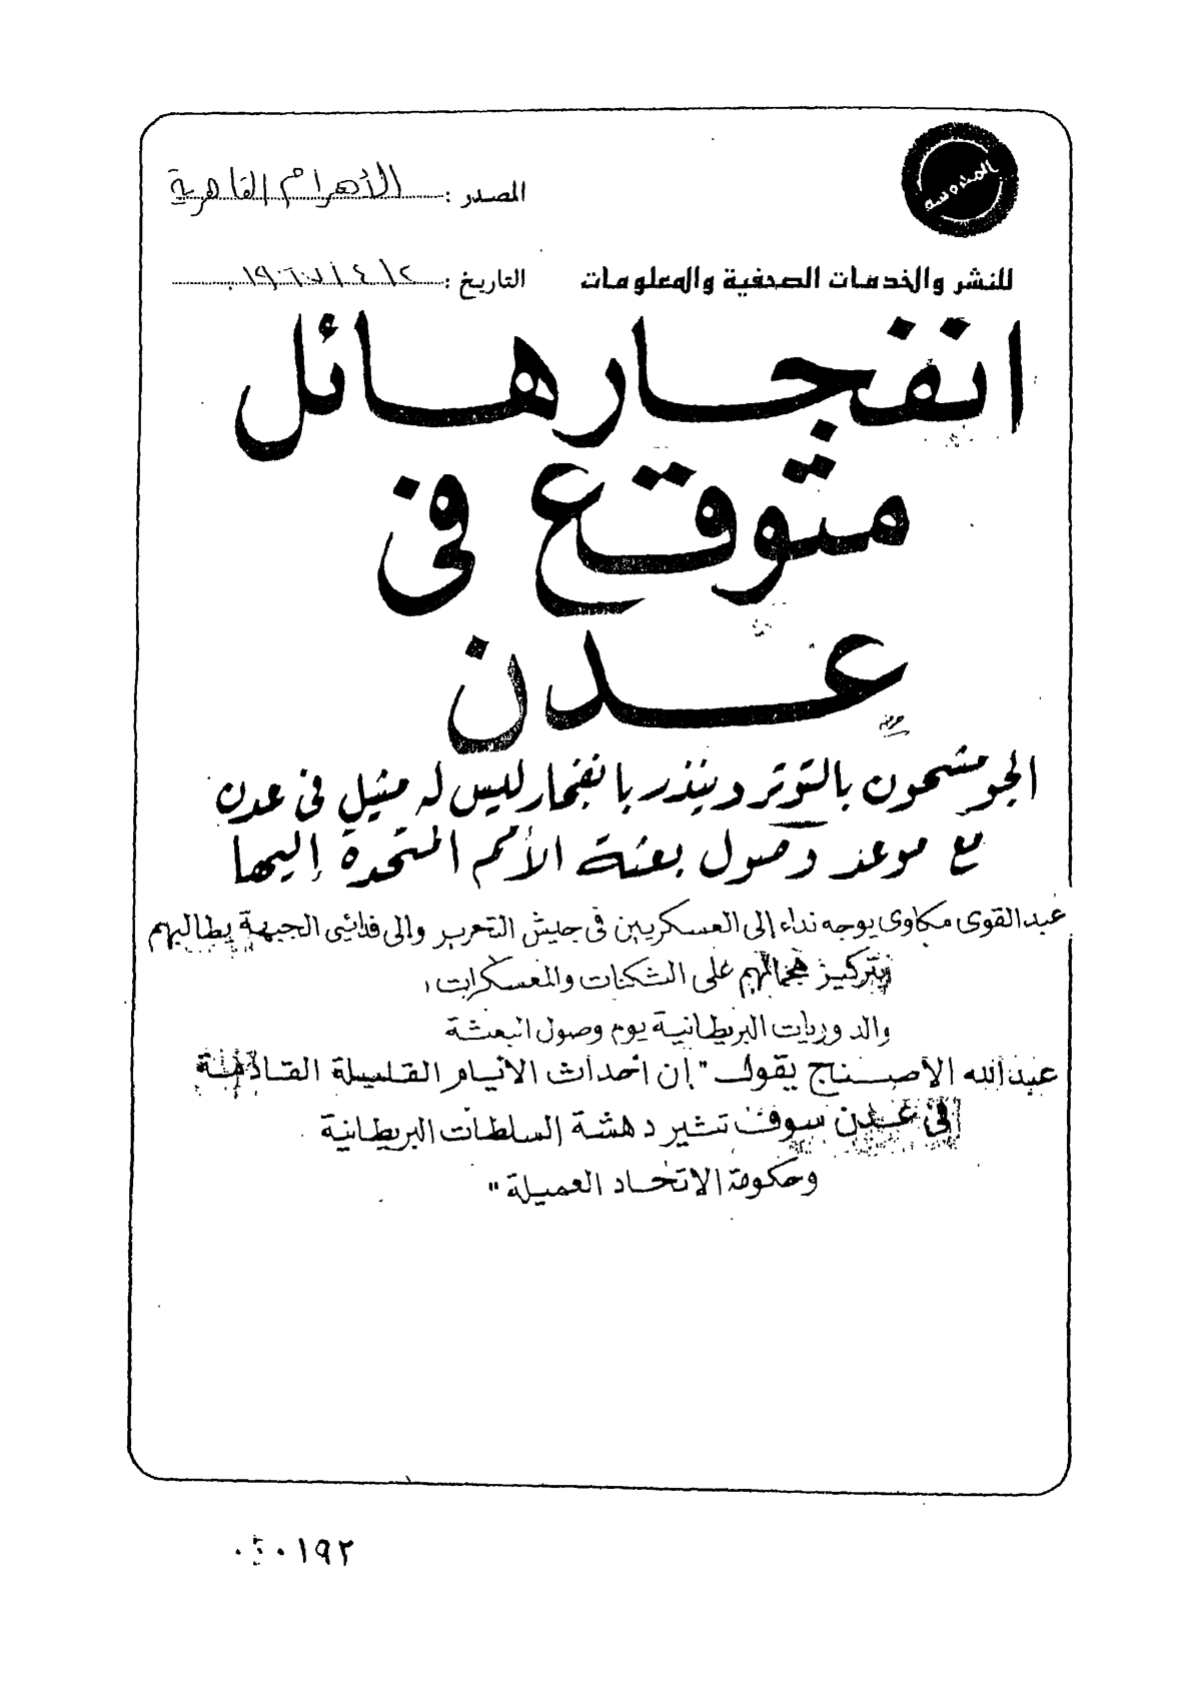 المحروسة
المصدر : الأهرام القاهرية
للنشر والخدمات الصحفية والمعلومات
التاريخ : ٢ / ٤ / ١٩٦٧
انفجار هائل
متوقع فى
عدن
الجو مشحون بالتوتر وينذر بانفجار ليس له مثيل فى عدن
مع موعد وصول بعثة الأمم المتحدة إليها
عبد القوى مكاوى يوجه نداء إلى العسكريين فى جيش التحرير والى فدائيى الجبهة يطالبهم
بتركيز هجماتهم على الثكنات والمعسكرات ،
والدوريات البريطانية يوم وصول البعثة
عبدالله الأصنج يقول "إن أحداث الأيام القليلة القادمة
فى عدن سوف تثير دهشة السلطات البريطانية
وحكومة الاتحاد العميلة"
١٩٢